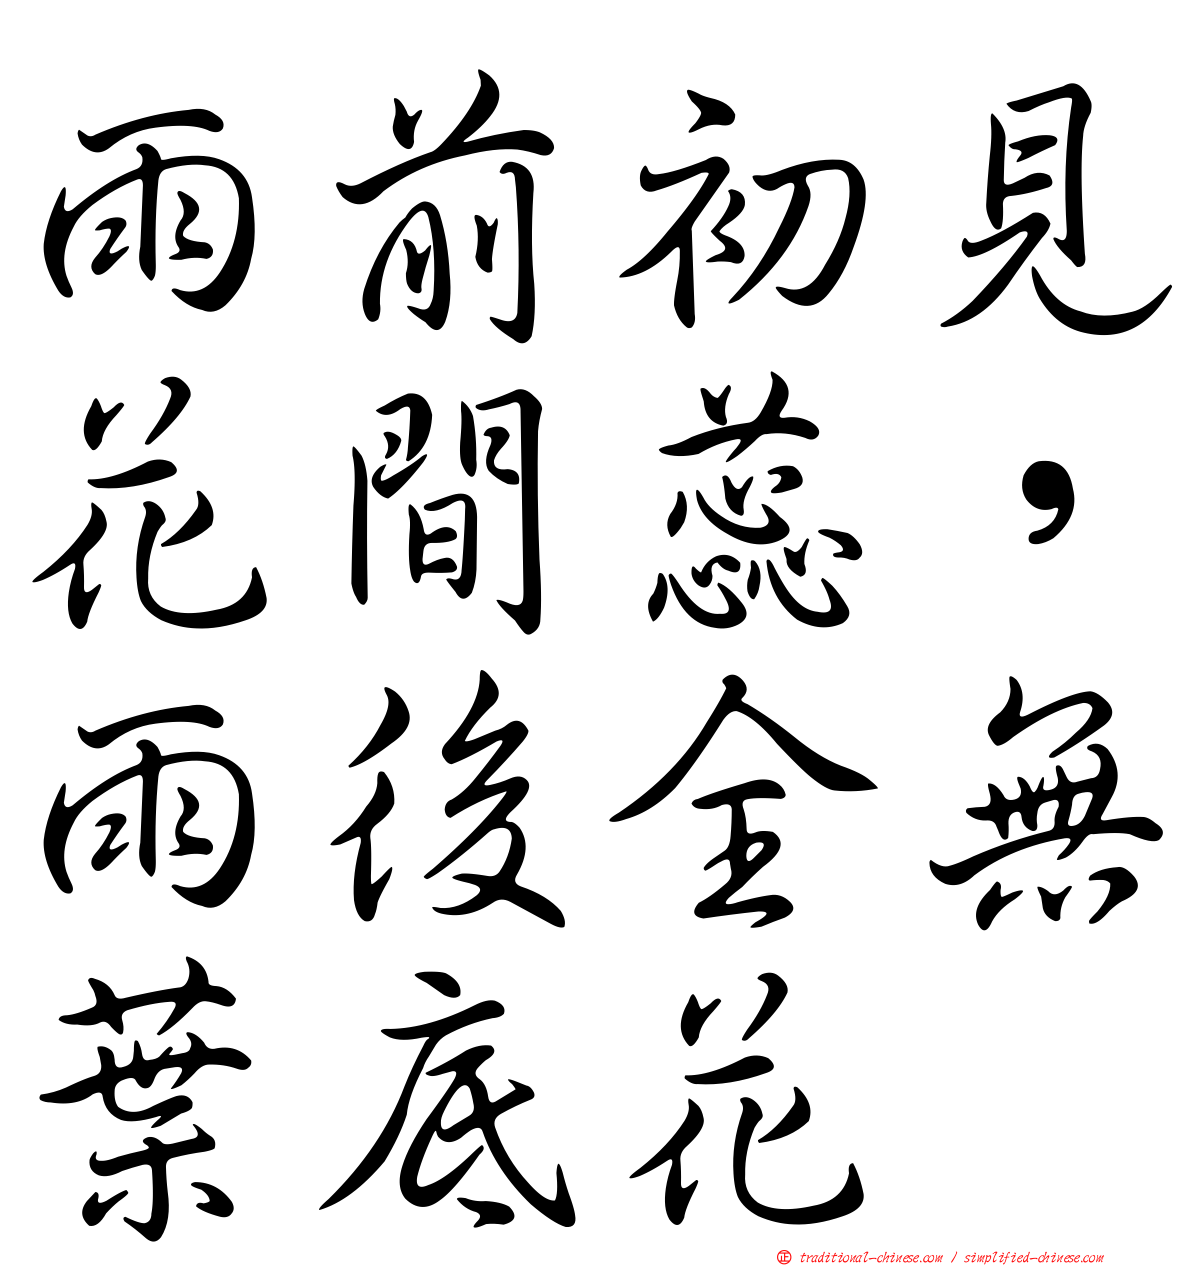 雨前初見
花間蕊，
雨後全無
葉底花
正 traditional-chinese.com / simplified-chinese.com